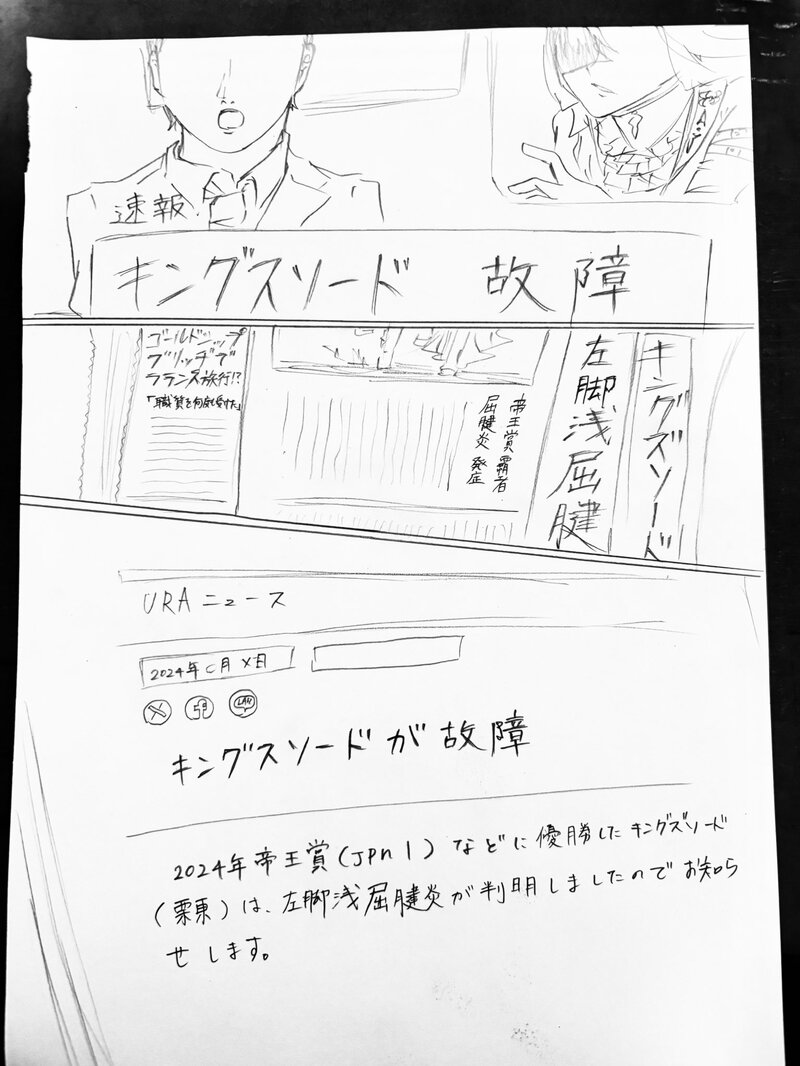 速報!
キングスソード 故障
キングズソード
左脚浅屈腱
帝王賞覇者
屈腱炎 発症
ゴールドシップ
ブリッヂで
フランス旅行!?
URAニュース
2024年C月X日
X
f
キングスソードが故障
2024年帝王賞(JPn1)などに優勝したキングズソード
(栗東)は、左脚浅屈腱炎が判明しましたのでお知ら
せします。